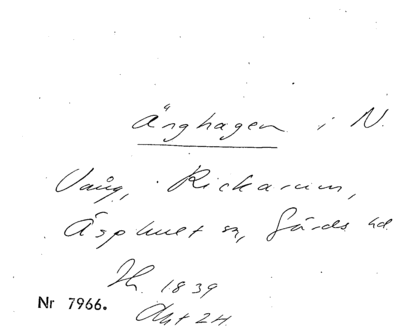 Änghagen i N.
Vång, Rickarum,
Äsphult sn, Gärds hd.
1839
Akt 24.
Nr 7966.